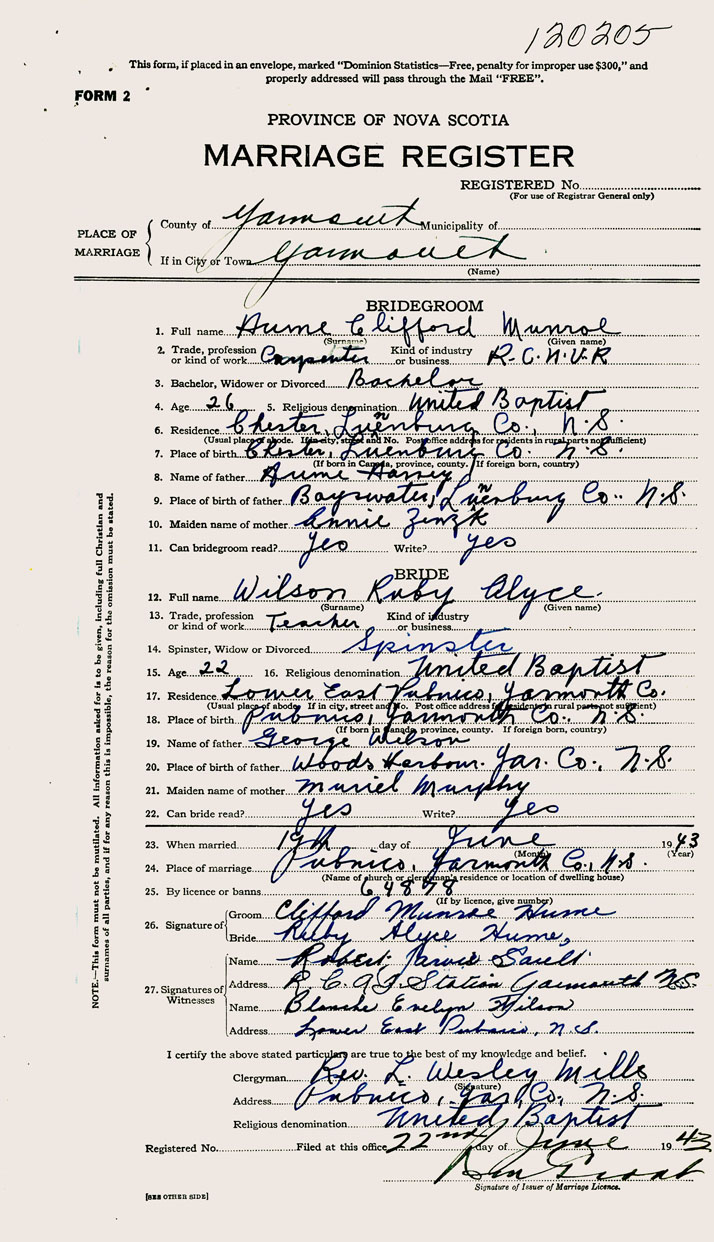 120205
This form, if placed in an envelope, marked “Dominion Statistics—Free, penalty for improper use $300,” and
properly addressed will pass through the Mail “FREE”.
FORM 2
PROVINCE OF NOVA SCOTIA
MARRIAGE REGISTER
REGISTERED No.
(For use of Registrar General only)
PLACE OF MARRIAGE
County of Yarmouth Municipality of
If in City or Town Yarmouth
(Name)
BRIDEGROOM
1. Full name Hume Clifford Munroe
(Surname) (Given name)
2. Trade, profession or kind of work Carpenter Kind of industry or business R.C.N.V.R
3. Bachelor, Widower or Divorced Bachelor
4. Age 26 5. Religious denomination United Baptist
6. Residence Chester, Luenburg Co., N.S.
(Usual place of abode. If in city, street and No. Post office address for residents in rural parts not sufficient)
7. Place of birth Chester, Luenburg Co. N.S.
(If born in Canada, province, county. If foreign born, country)
8. Name of father Hume Harvey
9. Place of birth of father Bayswater, Luenburg Co.. N.S.
10. Maiden name of mother Annie Zinck
11. Can bridegroom read? Yes Write? Yes
BRIDE
12. Full name Wilson Ruby Alyce.
(Surname) (Given name)
13. Trade, profession or kind of work Teacher Kind of industry or business
14. Spinster, Widow or Divorced Spinster
15. Age 22 16. Religious denomination United Baptist
17. Residence Lower East Pubnico, Yarmouth Co.
(Usual place of abode. If in city, street and No. Post office address for residents in rural parts not sufficient)
18. Place of birth Pubnico, Yarmouth Co.. N.S.
(If born in Canada, province, county. If foreign born, country)
19. Name of father George Wilson
20. Place of birth of father Woods Harbour. Yar. Co., N.S.
21. Maiden name of mother Muriel Murphy
22. Can bride read? Yes Write? Yes
23. When married 19th day of June 1943
(Month) (Year)
24. Place of marriage Pubnico, Yarmouth Co., N.S.
(Name of church or clergyman's residence or location of dwelling house)
25. By licence or banns 64878
(If by licence, give number)
26. Signature of
Groom Clifford Munroe Hume
Bride Ruby Alyce Hume,
27. Signatures of Witnesses
Name Robert Jarvis
Address R.C.A.F. Station Yarmouth N.S.
Name Blanche Evelyn Wilson
Address Lower East Pubnico, N.S.
I certify the above stated particulars are true to the best of my knowledge and belief.
Clergyman Rev. L. Wesley Mills
(Signature)
Address Pubnico, Yar. Co., N.S.
Religious denomination United Baptist
Registered No. Filed at this office 22nd day of June 1943
Signature of Issuer of Marriage Licence.
[SEE OTHER SIDE]
NOTE.—This form must not be mutilated. All information asked for is to be given, including full Christian and
surnames of all parties, and if for any reason this is impossible, the reason for the omission must be stated.